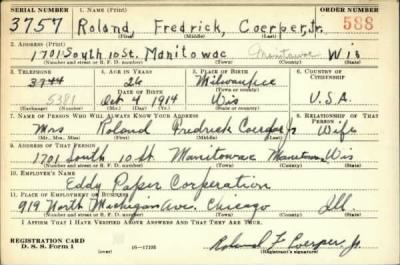 SERIAL NUMBER 1. NAME (Print) ORDER NUMBER
3757 Roland, Fredrick, Coerper, Jr. 588
(First) (Middle) (Last)
2. ADDRESS (Print)
1701 South 10 St. Manitowac Manitowac Wis
(Number and street or R. F. D. number) (Town) (County) (State)
3. TELEPHONE 4. AGE IN YEARS 5. PLACE OF BIRTH 6. COUNTRY OF CITIZENSHIP
3744 26 Milwaukee
DATE OF BIRTH (Town or county)
5381 Oct 4 1914 Wis U.S.A.
(Exchange) (Number) (Mo.) (Day) (Yr.) (State or country)
7. NAME OF PERSON WHO WILL ALWAYS KNOW YOUR ADDRESS 8. RELATIONSHIP OF THAT PERSON
Mrs Roland Fredrick Coerper Jr Wife
(Mr., Mrs., Miss) (First) (Middle) (Last)
9. ADDRESS OF THAT PERSON
1701 South 10 St. Manitowac Manitowac Wis
(Number and street or R. F. D. number) (Town) (County) (State)
10. EMPLOYER'S NAME
Eddy Paper Corperation
11. PLACE OF EMPLOYMENT OR BUSINESS
919 North Michigan Ave. Chicago Ill.
(Number and street or R. F. D. number) (Town) (County) (State)
I AFFIRM THAT I HAVE VERIFIED ABOVE ANSWERS AND THAT THEY ARE TRUE.
REGISTRATION CARD
D. S. S. Form 1 16—17105 Roland F Coerper Jr.
(Registrant's signature)